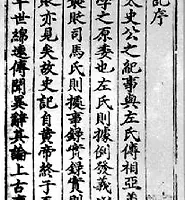 記序
太史公之紀事與左氏傳相亞
之原委也左氏則據例發義
敗司馬氏則事錄實錄實則
敗亦見矣故史記自黃帝終于
世綿遠傳聞異辭其論上古